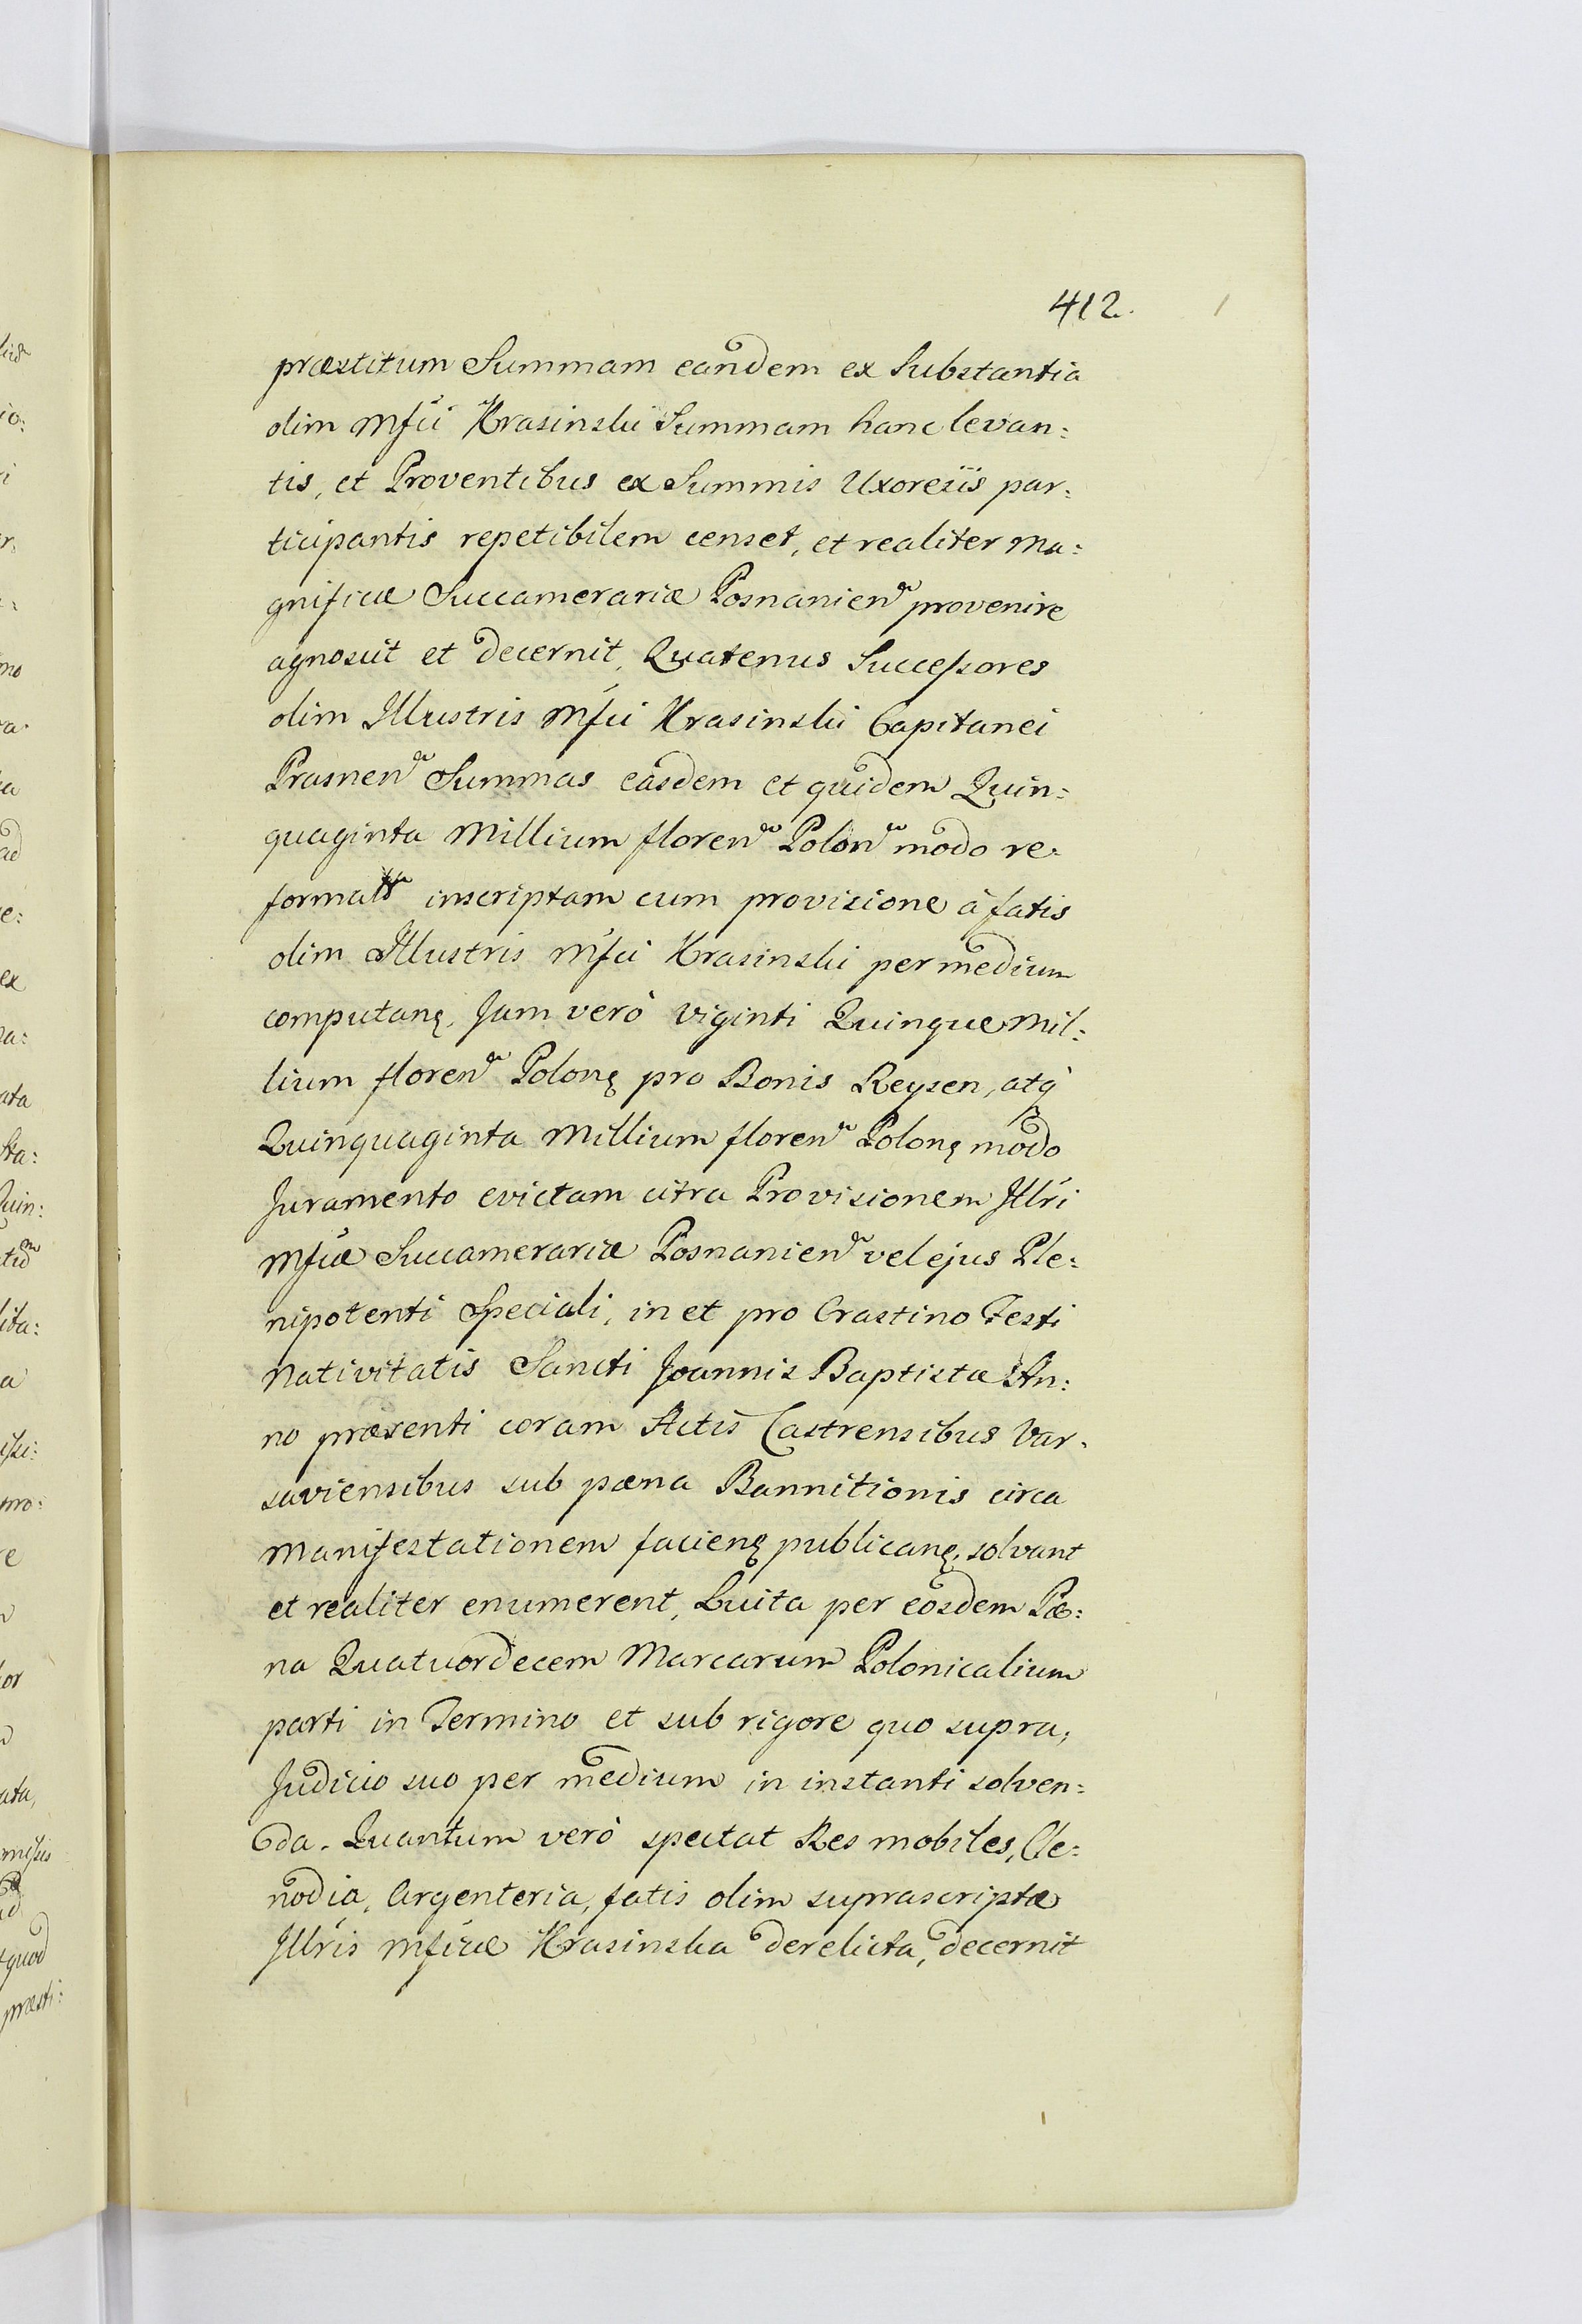 412.
præstitum Summam eandem ex Substantia
olim Mfci Krasinski Summam hanc levan:
tis, et Proventibus ex Summis Uxoreiis par:
ticipantis repetibilem censet, et realiter Ma:
gnificæ Succamerariæ Posnanien provenire
agnoscit et decernit, Quatenus Successores
olim Illustris Mfci Krasinski Capitanei
Prasnen Summas easdem et quidem Quin:
quaginta Millium floren Polon modo re:
format inscriptam cum provisione à fatis
olim Illustris Mfci Krasinski per medium
computanę, Jam verò Viginti Quinque Mil:
lium floren Polonę pro Bonis Reysen, atq̀
Quinquaginta Millium floren Polonę modo
Juramento evictam citra Provisionem Illri
Mfcæ Succamerariæ Posnanien vel ejus Ple:
nipotenti Speciali, in et pro Crastino Festi
Nativitatis Sancti Joannis Baptistæ An:
no præsenti coram Actis Castrensibus Var:
saviensibus sub pæna Bannitionis circa
Manifestationem facienę publicanę, solvant
et realiter enumerent, Luita per eosdem Pæ:
na Quatuordecem Marcarum Polonicalium
parti in Termino et sub rigore quo supra,
Judicio suo per medium in instanti solven:
da. Quantum verò spectat Res mobiles, Cle:
nodia, Argenteria, fatis olim suprascriptæ
Illris Mficæ Krasinska derelicta, decernit